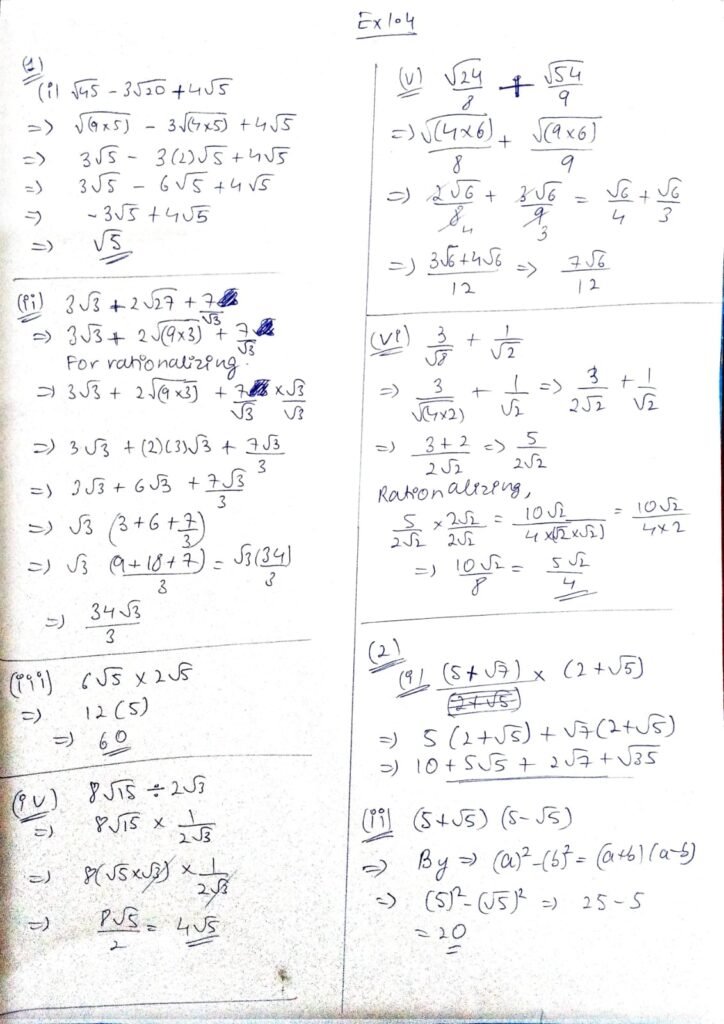 Ex 1.4
(1)
(i) √45 - 3√20 + 4√5
=> √(9x5) - 3√(4x5) + 4√5
=> 3√5 - 3(2)√5 + 4√5
=> 3√5 - 6√5 + 4√5
=> -3√5 + 4√5
=> √5
(ii) 3√3 + 2√27 + 7/√3
=> 3√3 + 2√(9x3) + 7/√3
For rationalizing.
=> 3√3 + 2√(9x3) + 7/√3 x √3/√3
=> 3√3 + (2)(3)√3 + 7√3/3
=> 3√3 + 6√3 + 7√3/3
=> √3 (3+6+7/3)
=> √3 (9+18+7)/3 = √3(34)/3
=> 34√3/3
(iii) 6√5 x 2√5
=> 12(5)
=> 60
(iv) 8√15 ÷ 2√3
=> 8√15 x 1/2√3
=> 8(√5x√3) x 1/2√3
=> 8√5/2 = 4√5
(v) √24/8 + √54/9
=> √(4x6)/8 + √(9x6)/9
=> 2√6/8 4 + 3√6/9 3 = √6/4 + √6/3
=> 3√6+4√6/12 => 7√6/12
(vi) 3/√8 + 1/√2
=> 3/√(4x2) + 1/√2 => 3/2√2 + 1/√2
=> 3+2/2√2 => 5/2√2
Rationalizing,
5/2√2 x 2√2/2√2 = 10√2/4x(√2x√2) = 10√2/4x2
=> 10√2/8 = 5√2/4
(2)
(i) (5+√7) x (2+√5)
=> 5(2+√5) + √7(2+√5)
=> 10+5√5 + 2√7+√35
(ii) (5+√5) (5-√5)
=> By => (a)²-(b)² = (a+b)(a-b)
=> (5)²-(√5)² => 25-5
= 20